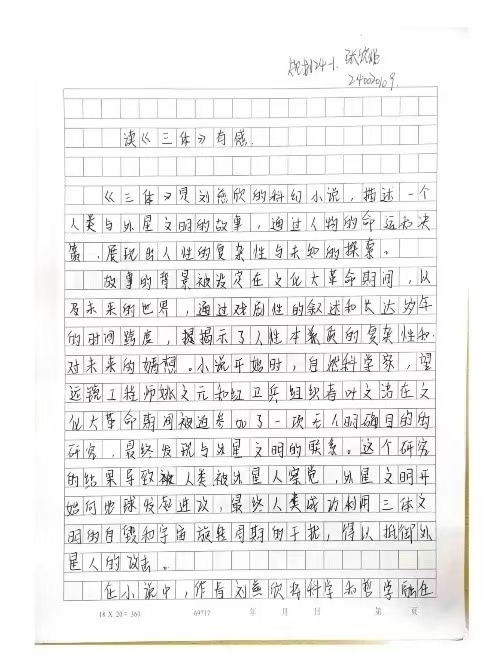 规划24-1. 张
24002109.
读《三体》有感.
《三体》是刘慈欣的科幻小说，描述一个
人类与外星文明的故事，通过人物的命运和决
策，展现出人性的复杂性与未知的探索。
故事的背景被设定在文化大革命期间，以
及未来的世界，通过戏剧性的叙述和长达岁年
的时间跨度，揭示了人性本质的复杂性和
对未来的猜想。小说开始时，自然科学家，望
远镜工程师姚文元和红卫兵组织者叶文洁在文
化大革命期间被迫参加了一项无人明确目的的
研究，最终发现与外星文明的联系。这个研究
的结果导致被人类被外星人察觉，外星文明开
始向地球发起进攻，最终人类成功利用三体文
明的自毁和宇宙旋转周期的干扰，得以抵御外
星人的攻击。
在小说中，作者刘慈欣将科学和哲学融在
18 X 20 = 360 69717 年 月 日 第 页